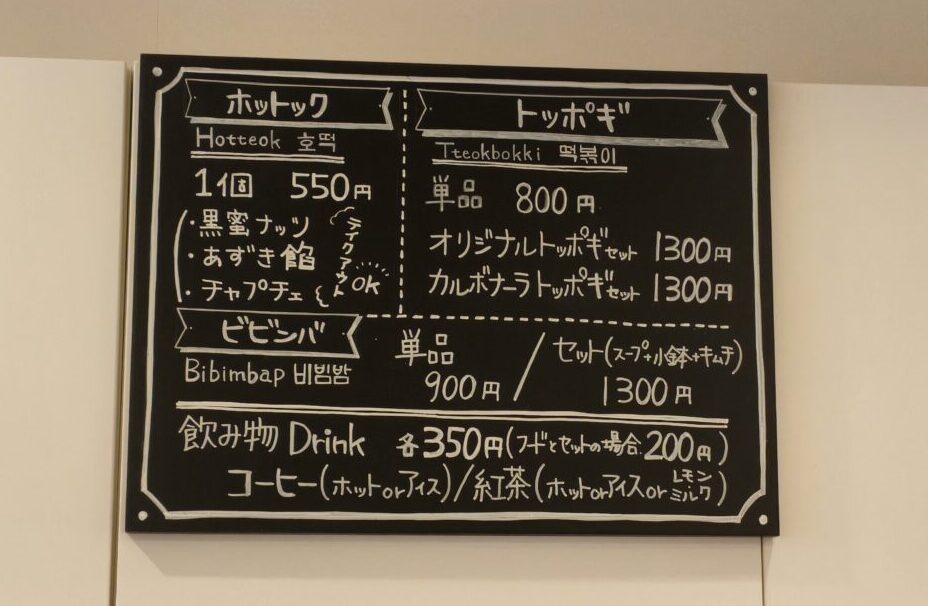 ホットック
Hotteok 호떡
1個 550円
・黒蜜ナッツ
・あずき餡
・チャプチェ
テイクアウト
OK
トッポギ
Tteokbokki 떡볶이
単品 800円
オリジナルトッポギセット 1300円
カルボナーラトッポギセット 1300円
ビビンバ
Bibimbap 비빔밥
単品
900円
/
セット(スープ+小鉢+キムチ)
1300円
飲み物 Drink 各350円(フードとセットの場合 200円)
コーヒー(ホットorアイス)/紅茶(ホットorアイスorレモンミルク)